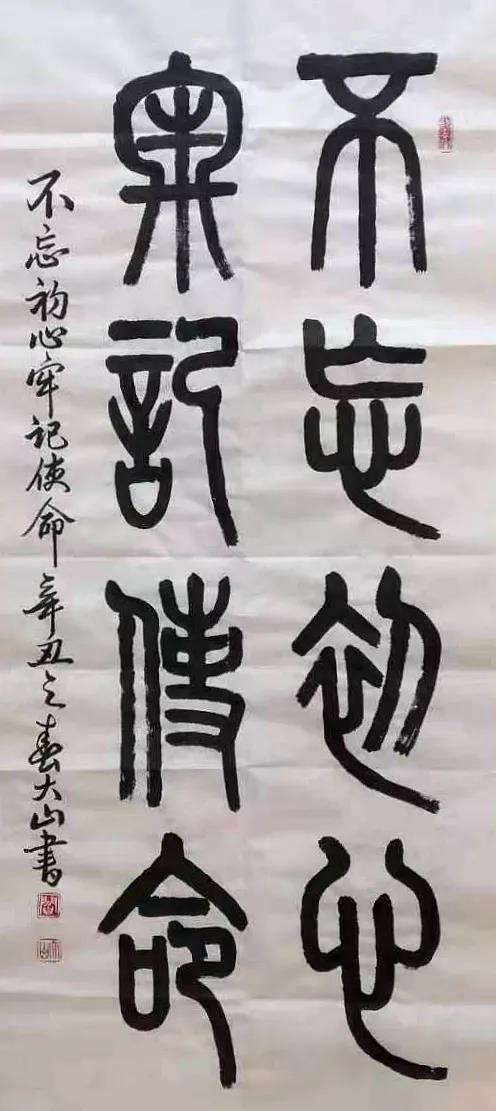 不忘初心
牢记使命
不忘初心牢记使命辛丑之春大山书